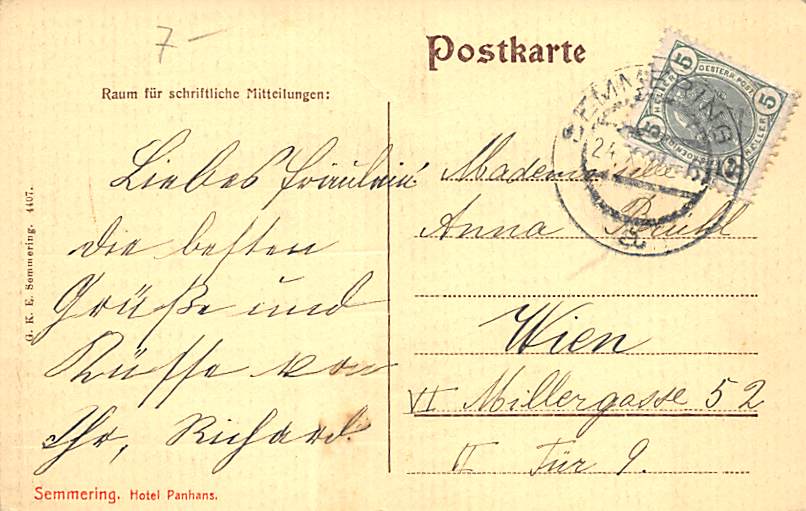 7-
Postkarte
Raum für schriftliche Mitteilungen:
Liebes Fräulein
die besten
Grüße und
Küsse von
Ihr, Richard.
Mademoiselle
Anna
Wien
VI Millergasse 52
II Tür 9.
SEMMERING
24
a
OESTERR. POST
5 HELLER 5
HELLER
5 5
G. K. E. Semmering. 4407.
Semmering. Hotel Panhans.